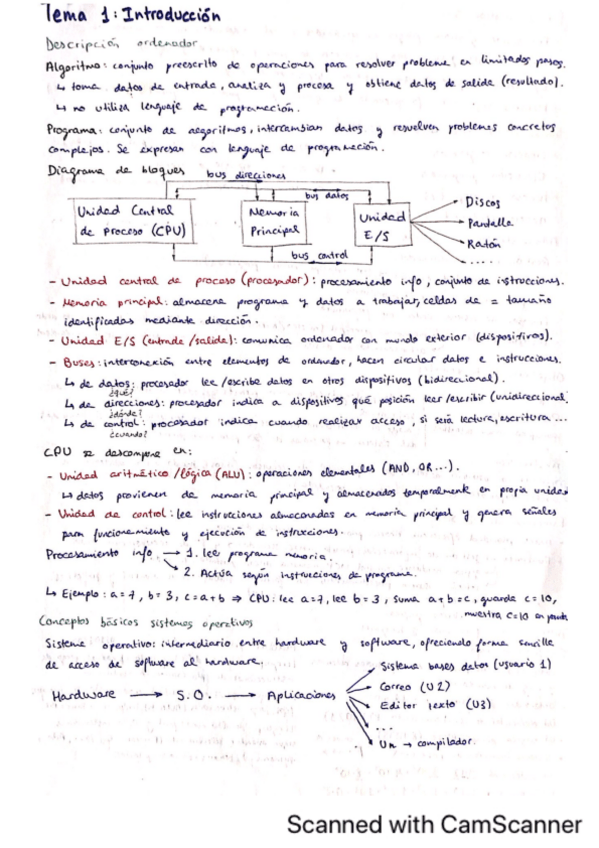 Tema 1: Introducción
Descripción ordenador
Algoritmo: conjunto preescrito de operaciones para resolver problema en limitados pasos.
↳ toma datos de entrada, analiza y procesa y obtiene datos de salida (resultado).
↳ no utiliza lenguaje de programación.
Programa: conjunto de algoritmos, intercambian datos y resuelven problemas concretos
complejos. Se expresan con lenguaje de programación.
Diagrama de bloques
bus direcciones
bus datos
Unidad Central
de Proceso (CPU)
Memoria
Principal
Unidad
E/S
Discos
Pantalla
Ratón
.....
bus control
- Unidad central de proceso (procesador): procesamiento info, conjunto de instrucciones.
- Memoria principal: almacena programa y datos a trabajar, celdas de = tamaño
identificadas mediante dirección.
- Unidad E/S (entrada/salida): comunica ordenador con mundo exterior (dispositivos).
- Buses: interconexión entre elementos de ordenador, hacen circular datos e instrucciones.
↳ de datos: procesador lee/escribe datos en otros dispositivos (bidireccional).
¿qué?
↳ de direcciones: procesador indica a dispositivos qué posición leer/escribir (unidireccional)
¿dónde?
↳ de control: procesador indica cuando realizar acceso, si será lectura, escritura ...
¿cuando?
CPU se descompone en:
- Unidad aritmético/lógica (ALU): operaciones elementales (AND, OR...).
↳ datos provienen de memoria principal y almacenados temporalmente en propia unidad
- Unidad de control: lee instrucciones almacenadas en memoria principal y genera señales
para funcionamiento y ejecución de instrucciones.
Procesamiento info → 1. lee programa memoria.
2. Actúa según instrucciones de programa.
↳ Ejemplo: a=7, b=3, c=a+b ⇒ CPU: lee a=7, lee b=3, suma a+b=c, guarda c=10,
muestra c=10 en
Conceptos básicos sistemas operativos
Sistema operativo: intermediario entre hardware y software, ofreciendo forma sencilla
de acceso del software al hardware.
Hardware → S.O. → Aplicaciones
Sistema bases datos (usuario 1)
Correo (U2)
Editor texto (U3)
...
Un → compilador.
Scanned with CamScanner